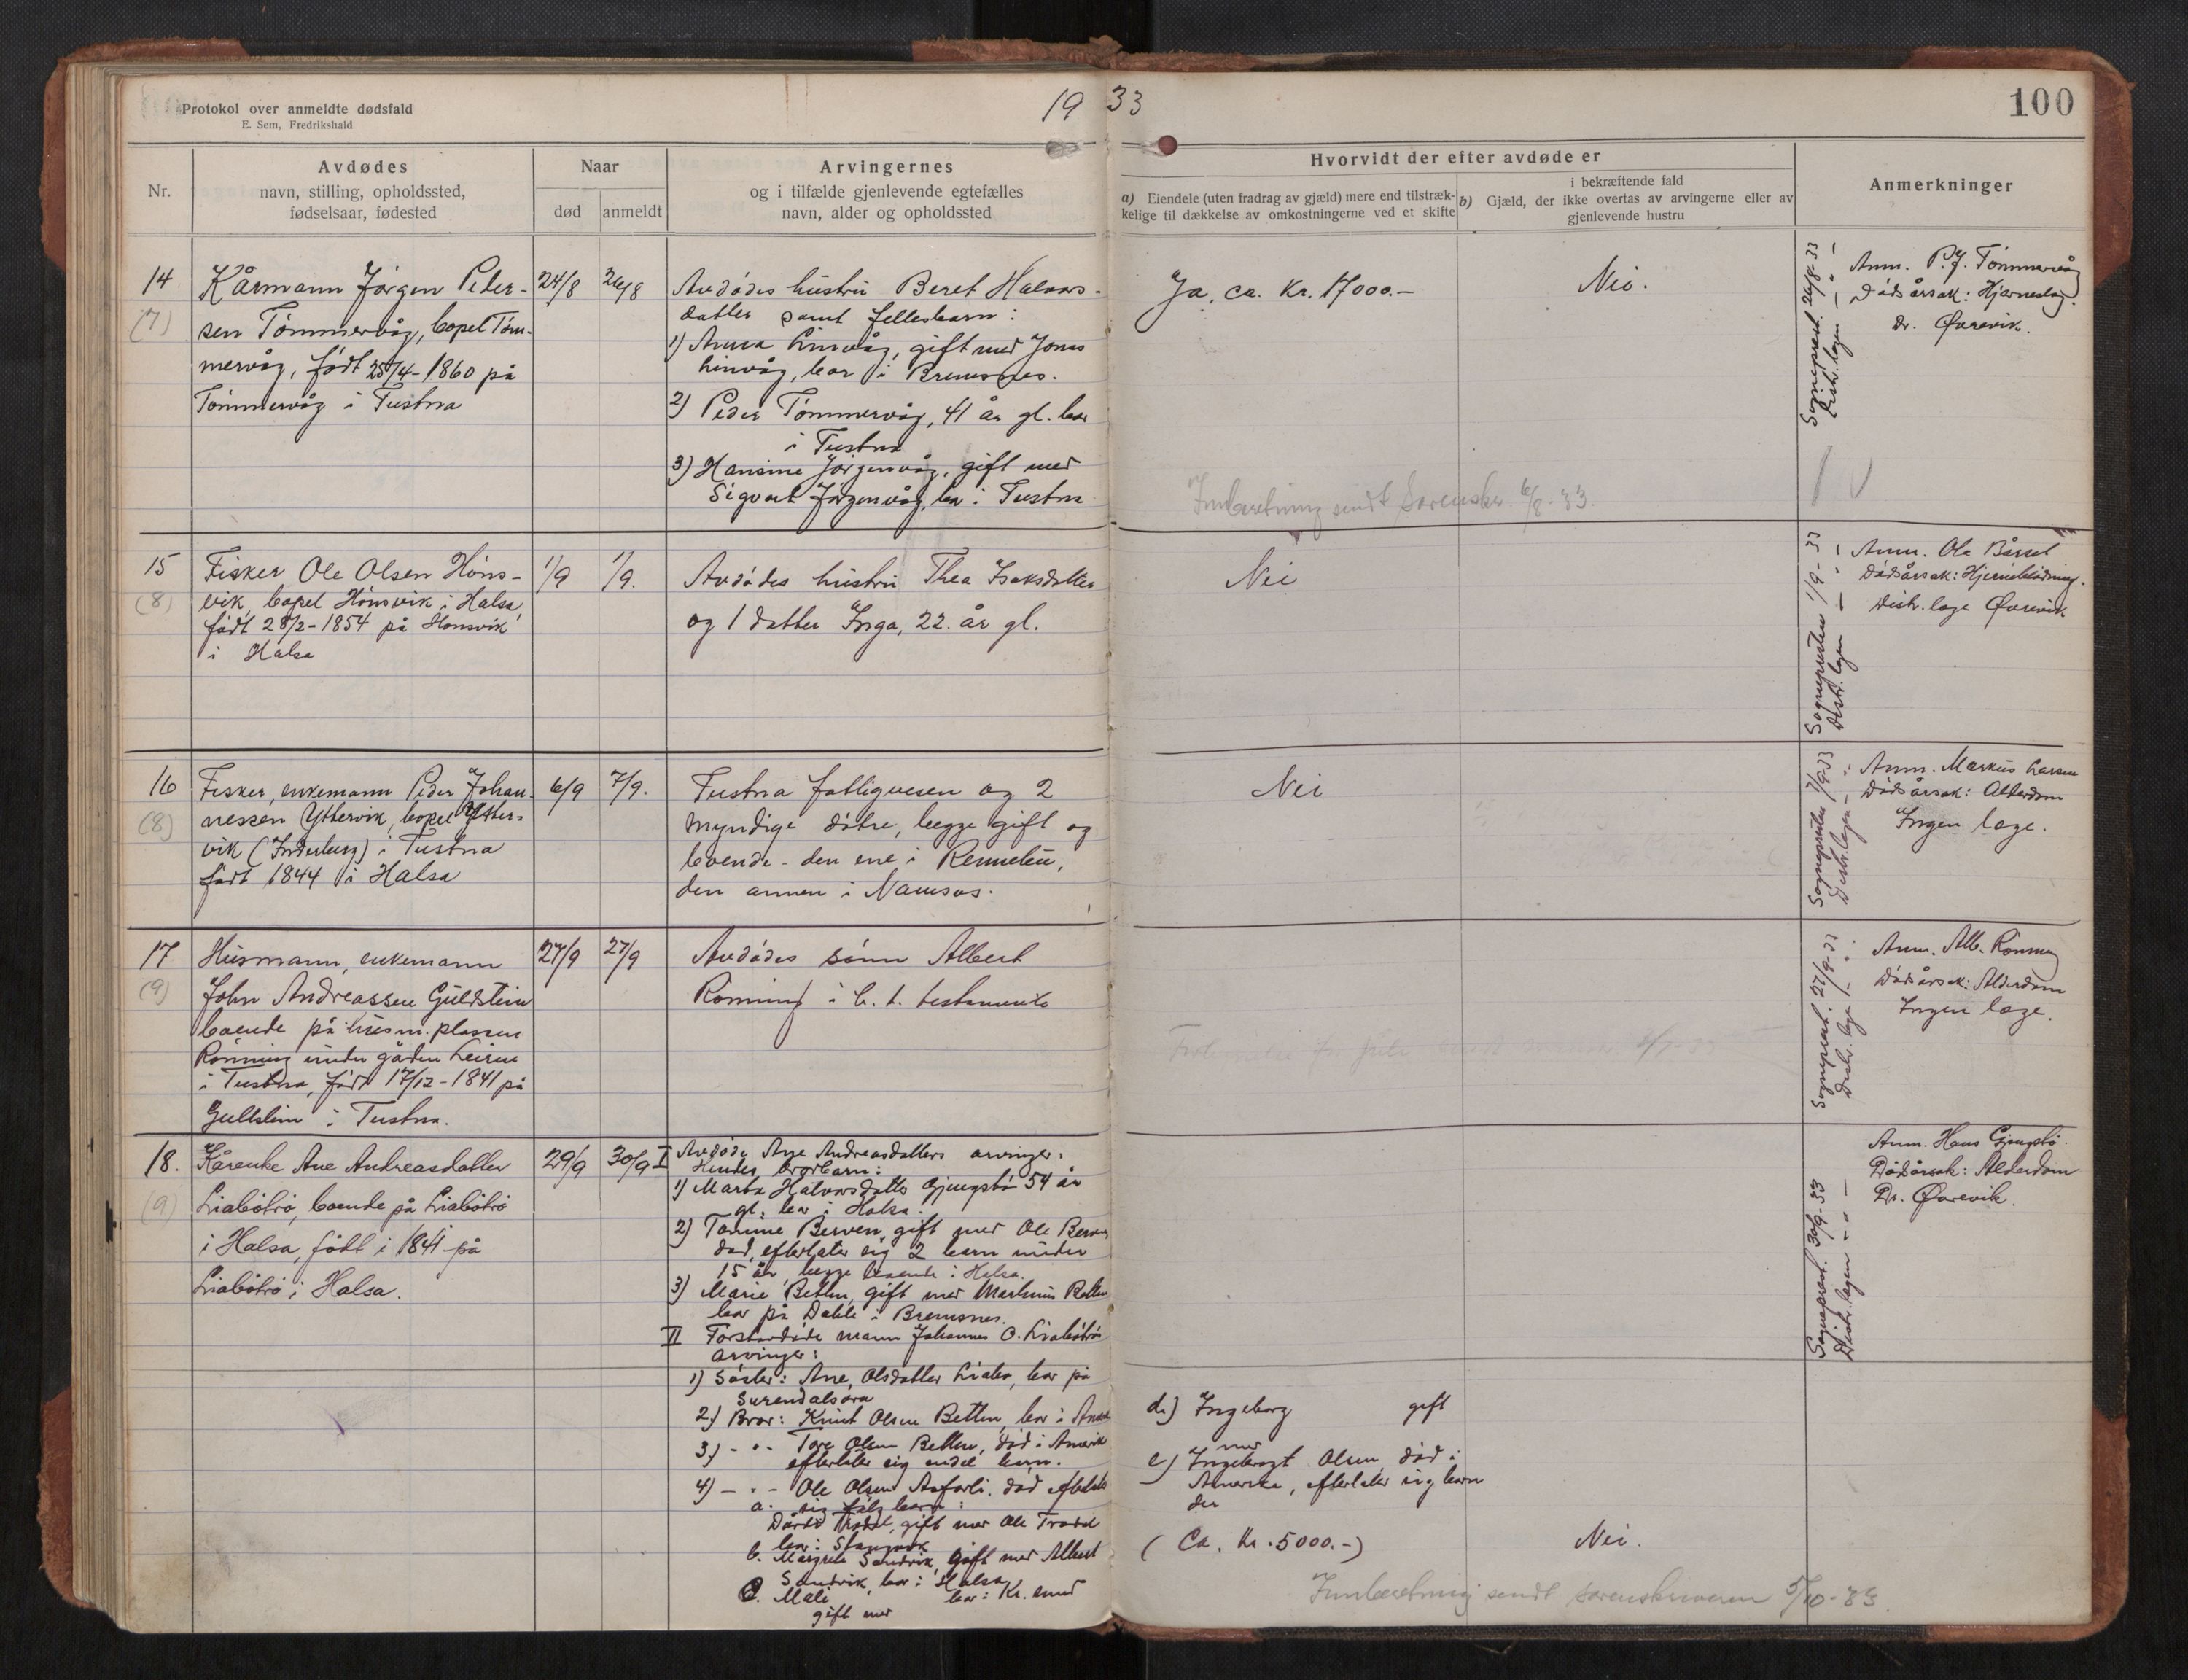 Protokol over anmeldte dødsfald
E. Sem, Fredrikshald
1933
100
Nr.
Avdødes
navn, stilling, opholdssted,
fødselsaar, fødested
Naar
død
anmeldt
Arvingernes
og i tilfælde gjenlevende egtefælles
navn, alder og opholdssted
Hvorvidt der efter avdøde er
a) Eiendele (uten fradrag av gjæld) mere end tilstræk-
kelige til dækkelse av omkostningerne ved et skifte
i bekræftende fald
b) Gjæld, der ikke overtas av arvingerne eller av
gjenlevende hustru
Anmerkninger
14
(7)
Kårmann Jørgen Peder-
sen Tømmervåg, bopel Tøm-
mervåg, født 25/4-1860 på
Tømmervåg i Tustna
24/8
26/8
Avdødes hustru Beret Halvors-
datter samt fellesbarn:
1) Anna Linvåg, gift med Jonas
Linvåg, bor i Bremsnes.
2) Peder Tømmervåg, 41 år gl. bor
i Tustna
3) Hansine Jørgenvåg, gift med
Sigvart Jørgenvåg, bor i Tustna
Ja, ca. Kr. 17000.-
Nei.
Innberetning sendt Sorenskr. 6/8-33.
Sogneprest. 26/8-33
Distr. lægen - " -
Anm. P.J. Tømmervåg
Dødsårsak: Hjerneslag.
Dr. Øverevik.
15
(8)
Fisker Ole Olsen Høns-
vik, bopel Hønsvik i Halsa,
født 28/2-1854 på Hønsvik
i Halsa
1/9
1/9.
Avdødes hustru Thea Isaksdatter
og 1 datter Inga, 22 år gl.
Nei
Sognepresten 1/9-33
Distr. lægen - " -
Anm. Ole Bårset
Dødsårsak: Hjerneblødning.
Distr. læge Øverevik
16
(8)
Fisker, enkemann Peder Johan-
nessen Yttervik, bopel Ytter-
vik (Inderberg) i Tustna
født 1844 i Halsa
6/9
7/9.
Tustna fattigvesen og 2
myndige døtre, begge gift og
boende - den ene i Rennebu,
den annen i Namsos.
Nei
Sognepresten 7/9-33
Distr. lægen - " -
Anm. Markus Larsen
Dødsårsak: Alderdom
Ingen læge.
17
(9)
Husmann, enkemann
John Andreassen Guldstein
boende på husm. plassen
Rønning under gården Leirin
i Tustna, født 17/12-1841 på
Gullstein i Tustna.
27/9
27/9
Avdødes sønn Albert
Rønning i h. t. testamente
Sogneprest. 27/9-33
Distr. læge - " -
Anm. Alb. Rønning
Dødsårsak: Alderdom
Ingen læge.
18.
(9)
Kårenke Ane Andreasdatter
Liabøtrø, boende på Liabøtrø
i Halsa, født i 1841 på
Liabøtrø i Halsa.
29/9
30/9
I Avdøde Ane Andreasdatters arvinger:
Hendes brorbarn:
1) Marta Halvorsdatter Gjengstø 54 år
gl. bor i Halsa.
2) Tomine Berven, gift med Ole Berven
død, efterlater sig 2 barn under
15 år, begge boende i Halsa.
3) Marie Betten, gift med Martinus Betten
bor på Dahle i Bremsnes.
II Forstavdøde mann Johannes O. Liabøtrøs
arvinger:
1) Søster: Ane Olsdatter Liabø, bor på
Surendalsøra
2) Bror: Knut Olsen Betten, bor i
3) - " - Tore Olsen Betten, død i Amerik
efterlater sig endel barn.
4) - " - Ole Olsen død efterlater
sig følg barn:
a. gift med Ole
bor i Stangvik
b. Margrete Sandvik, gift med Albert
Sandvik, bor i Halsa
c. Mali bor i Kr. sund
gift med
d.) Ingeborg gift
med
e) Ingebrigt Olsen, død i
Amerika, efterlater sig barn
der
(Ca. Kr. 5000.-)
Nei.
Innberetning sendt sorenskriveren 5/10-33.
Sogneprest. 30/9-33
Distr. lægen - " -
Anm. Hans Gjengstø.
Dødsårsak: Alderdom
Dr. Øverevik.